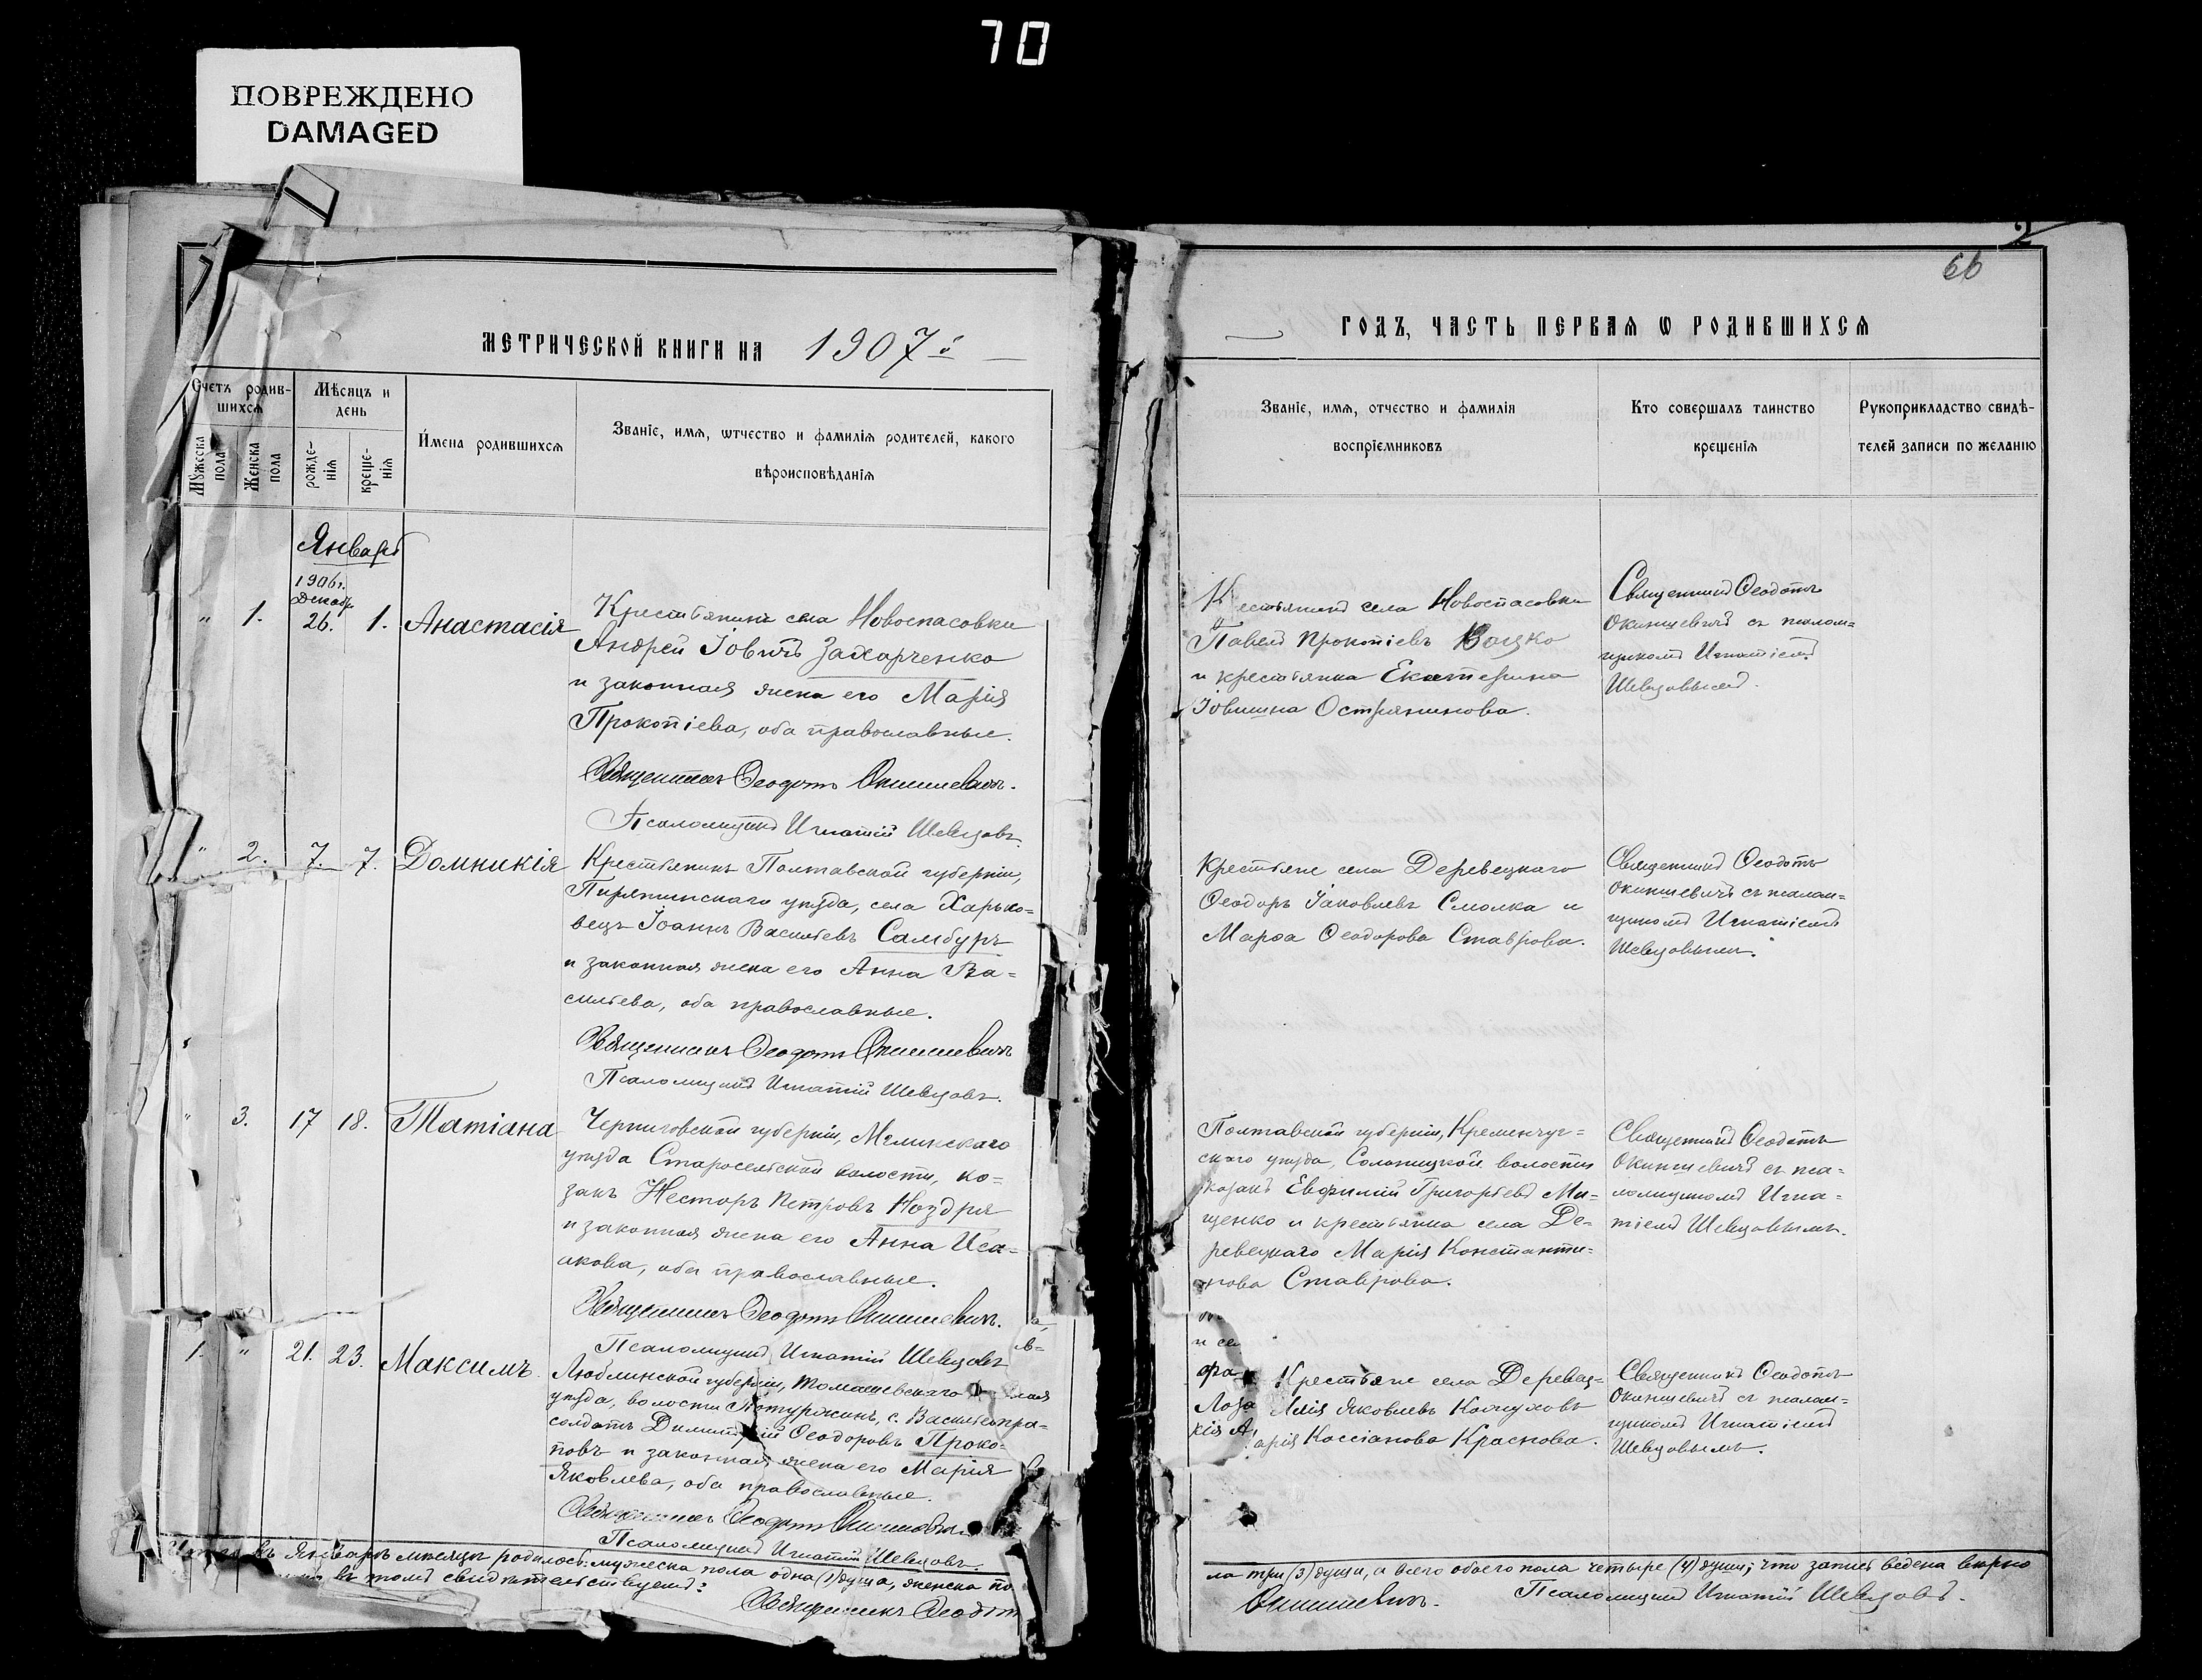 70
ПОВРЕЖДЕНО
DAMAGED
2
66
МЕТРИЧЕСКОЙ КНИГИ НА 1907й
ГОДЪ, ЧАСТЬ ПЕРВАЯ Ѡ РОДИВШИХСЯ
Счетъ родив-
шихся
Мужеска
пола
Женска
пола
Мѣсяцъ и
день
рожде-
нія
креще-
нія
Имена родившихся
Званіе, имя, ѡтчество и фамилія родителей, какого
вѣроисповѣданія
Званіе, имя, отчество и фамилія
воспріемниковъ
Кто совершалъ таинство
крещенія
Рукоприкладство свидѣ-
телей записи по желанію
Январь
1906 г.
Декабр.
" 1. 26. 1. Анастасія
Крестьянинъ села Новоспасовки
Андрей Іовичъ Захарченко
и законная жена его Марія
Прокопіева, оба православные.
Священникъ Ѳеодотъ Окиншевичъ.
Псаломщикъ Игнатій Шевцовъ.
Крестьянинъ села Новоспасовки
Павелъ Прокопіевъ Коцко
и крестьянка Екатерина
Іовишна Острянинова.
Священникъ Ѳеодотъ
Окиншевичъ съ псалом=
щикомъ Игнатіемъ
Шевцовымъ.
" 2. 7. 7. Домникія
Крестьянинъ Полтавской губерніи,
Пирятинскаго уѣзда, села Харько=
вецъ Іоаннъ Васильевъ Самбуръ
и законная жена его Анна Ва=
сильева, оба православные.
Священникъ Ѳеодотъ Окиншевичъ
Псаломщикъ Игнатій Шевцовъ.
Крестьяне села Деревецкаго
Ѳеодоръ Іаковлевъ Смолка и
Марѳа Ѳеодорова Ставрова.
Священникъ Ѳеодотъ
Окиншевичъ съ псалом=
щикомъ Игнатіемъ
Шевцовымъ.
" 3. 17 18. Татіана
Черниговской губерніи, Мглинскаго
уѣзда Старосельской волости, ко=
закъ Несторъ Петровъ Ноздря
и законная жена его Анна Иса=
акова, оба православные.
Священникъ Ѳеодотъ Окиншевичъ.
Псаломщикъ Игнатій Шевцовъ
Полтавской губерніи, Кременчуг=
скаго уѣзда, Солоницкой волости
козакъ Евфимій Григорьевъ Ми=
щенко и крестьянка села Де=
ревецкаго Марія Константи=
нова Ставрова.
Священникъ Ѳеодотъ
Окиншевичъ съ пса=
ломщикомъ Игна=
тіемъ Шевцовымъ.
1. " 21. 23. Максимъ.
Люблинской губерніи, Томашевскаго
уѣзда, волости Потуржинъ, с. Василь
солдатъ Димитрій Ѳеодоровъ Проко=
повъ и законная жена его Марія
Яковлева, оба православные.
Священникъ Ѳеодотъ Окиншевичъ
Псаломщикъ Игнатій Шевцовъ.
и се
фа
Лоза
кія А
Крестьяне села Деревец=
Яковлевъ
арія Кассіанова Краснова.
Священникъ Ѳеодотъ
Окиншевичъ съ псалом=
щикомъ Игнатіемъ
Шевцовымъ.
въ Январѣ мѣсяцѣ родилось: мужеска пола одна (1) душа, женска по
ла три (3) души, а всего обоего пола четыре (4) души; что запись ведена вѣрно
въ томъ свидѣтельствуемъ:
Священникъ Ѳеодотъ
Окиншевичъ. Псаломщикъ Игнатій Шевцовъ.